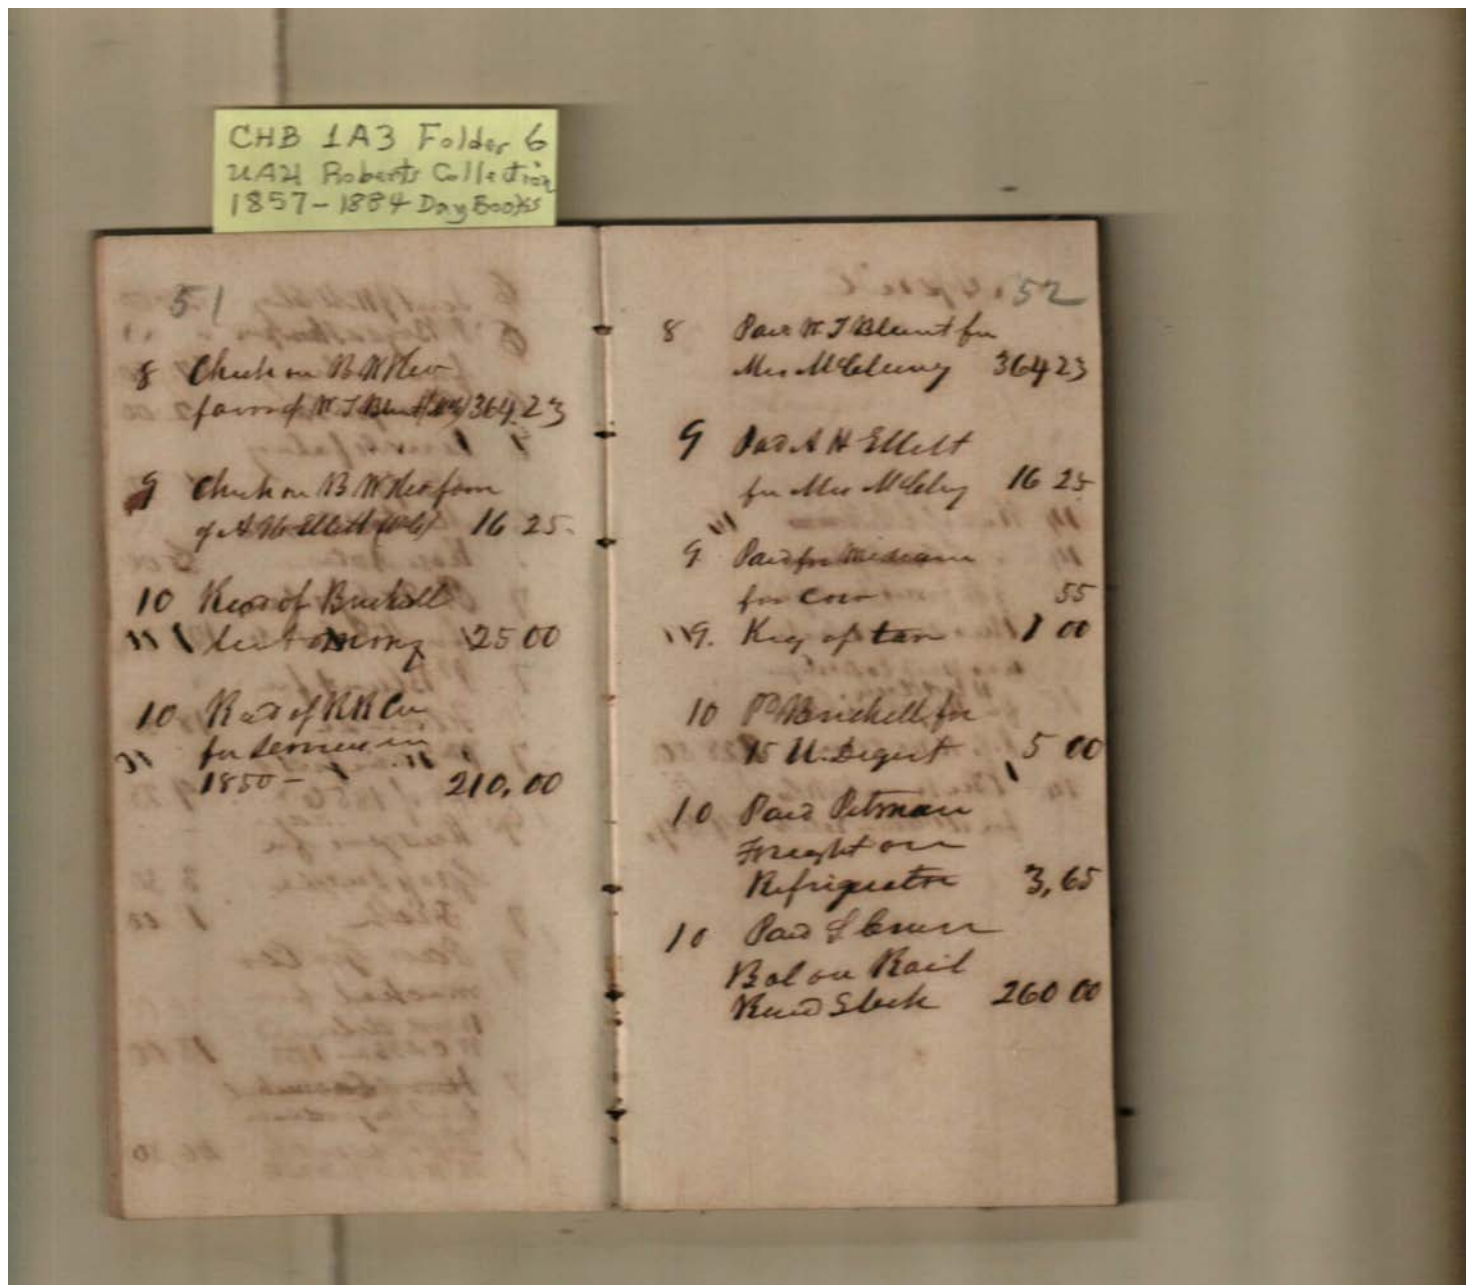 CHB 1A3 Folder 6
UAH Roberts Collection
1857-1884 Day Books
51
8 Check on B W & co
favor of W. T Blunt 364.23
9 Check on B W & co favor
of A H Ellett 16 25.
10 Recd of Brickell
25 00
10 Recd of RR Co
for services in
1850 - 210,00
52
8 Paid W T Blunt for
Mrs McClung 364 23
9 Paid A H Ellett
for Mrs McClung 16 25
9 Paid for
for cow 55
9. Keg of tar 1 00
10 Pd Brickell for
U.S. Digest 5 00
10 Paid Pitman
Freight on
Refrigerator 3,65
10 Paid
Bal on Rail
Road Stock 260 00